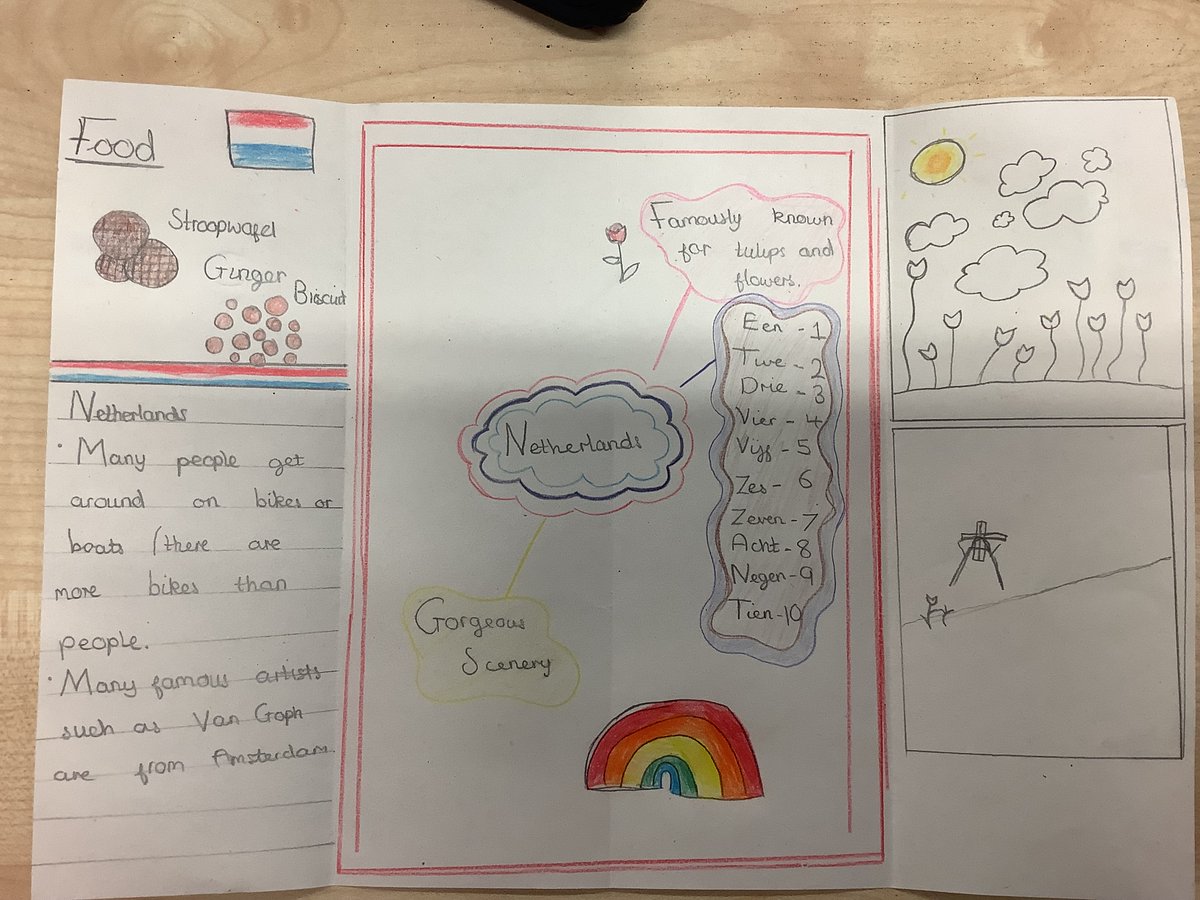 Food
Stroopwafel
Ginger
Biscuit
Netherlands
• Many people get
around on bikes or
boats (there are
more bikes than
people.
• Many famous artists
such as Van Goph
are from Amsterdam.
Famously known
for tulips and
flowers.
Netherlands
Een - 1
Twe - 2
Drie - 3
Vier - 4
Vijf - 5
Zes - 6
Zeven - 7
Acht - 8
Negen - 9
Tien - 10
Gorgeous
Scenery